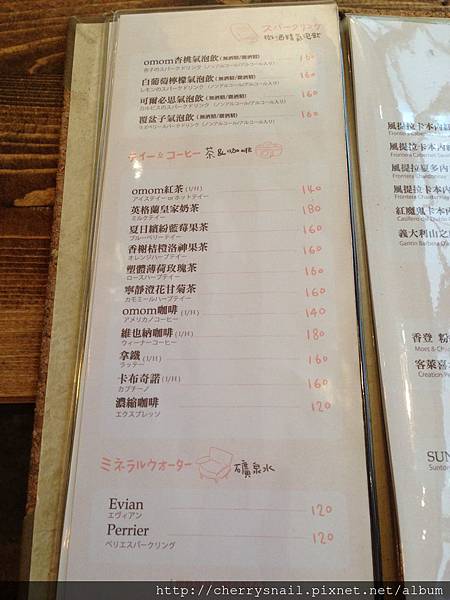 スパークリング
微酒精氣泡飲
omom杏桃氣泡飲(無酒精/微酒精) 160
杏子のスパークドリンク(ノンアルコール/アルコール入り)
白葡萄檸檬氣泡飲(無酒精/微酒精) 160
レモンのスパークドリンク(ノンアルコール/アルコール入り)
可爾必思氣泡飲(無酒精/微酒精) 160
カルピスのスパークドリンク(ノンアルコール/アルコール入り)
覆盆子氣泡飲(無酒精/微酒精) 160
ラズベリースパークドリンク(ノンアルコール/アルコール入り)
テイー&コーヒー 茶&咖啡
omom紅茶(I/H) 140
アイステイー orホットテイー
英格蘭皇家奶茶 180
ミルクテイー
夏日繽紛藍莓果茶 160
ブルーベリーテイー
香榭桔橙洛神果茶 160
オレンジハーブテイー
塑體薄荷玫瑰茶 160
ロースハーブテイー
寧靜澄花甘菊茶 160
カモミールハーブテイー
omom咖啡(I/H) 140
アメリカノコーヒー
維也納咖啡(I/H) 180
ウィーナーコーヒー
拿鐵(I/H) 160
ラッテー
卡布奇諾(I/H) 160
カプチーノ
濃縮咖啡 120
エクスプレッソ
ミネラルウオーター 礦泉水
Evian 120
エヴィアン
Perrier 120
ペリエスパークリング
風提拉卡本內
Frontera Cabernet
風提拉卡本內
Frontera Cabernet
風提拉夏多內
Frontera Chardonnay
風提拉卡本內
Frontera
紅魔鬼卡本內
Casillero del
義大利山之
Gancia Barbera
香登 粉
Moet & Ch
客萊喜
Creation
SUN
Suntor
http://cherrysnail.pixnet.net/album